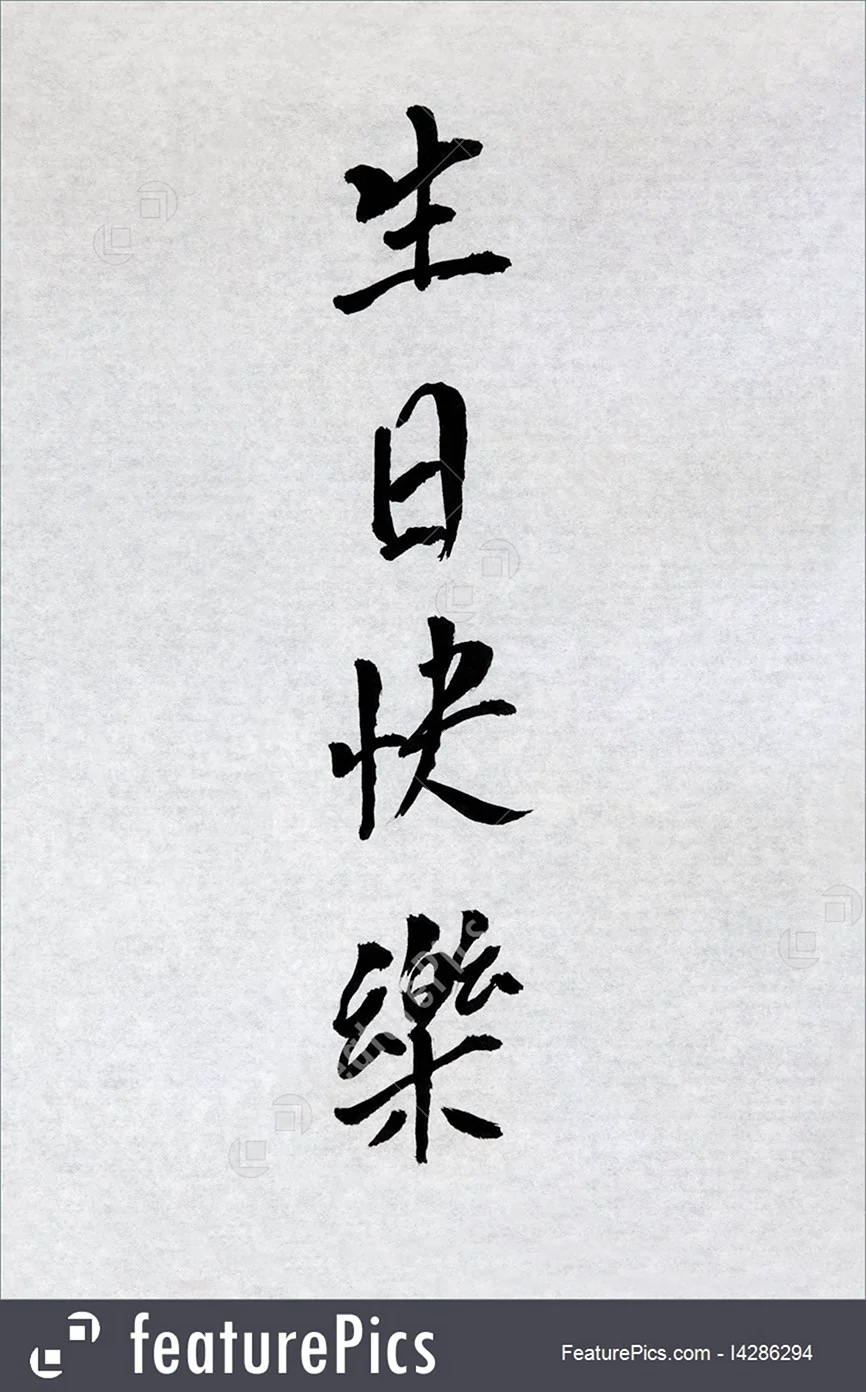 生日快樂
featurePics
FeaturePics.com - I4286294